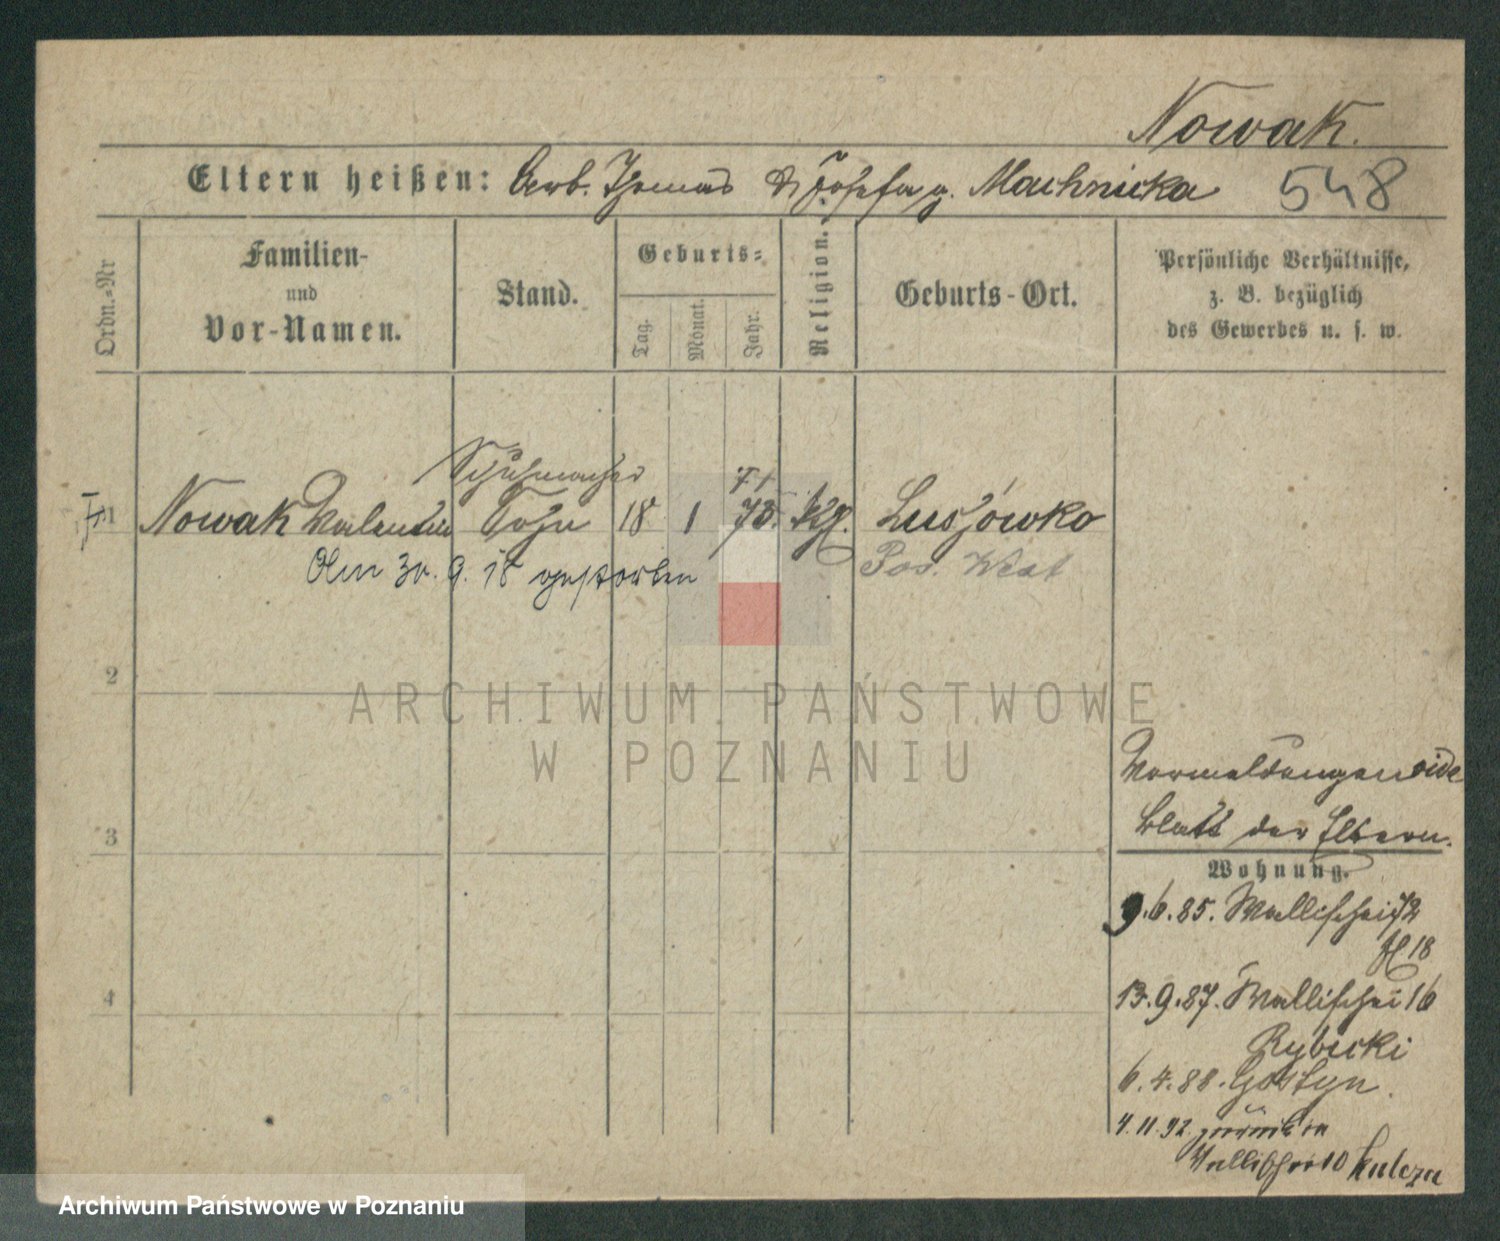 Nowak.
Eltern heißen: Arb. Thomas & Josefa g. Machnicka 548
Ordn.-Nr
Familien-
und
Vor-Namen.
Stand.
Geburts-
Tag.
Monat.
Jahr.
Religion.
Geburts-Ort.
Persönliche Verhältnisse,
z. B. bezüglich
des Gewerbes u. s. w.
Schuhmacher
71
1 Nowak Valentin Sohn 18 1 73. kth. Lusówko
Am 30. 9. 18 gestorben
Pos. West
2
ARCHIWUM PAŃSTWOWE
W POZNANIU
Vormeldungen side
blatt der Eltern.
3
Wohnung.
9.6.85. Wallischei 72
H 18
4
13.9.87. Wallischei 16
Rybicki
6.4.88. Gostyn.
4.11.92 zurück in
Wallischei 10 Kulcza
Archiwum Państwowe w Poznaniu